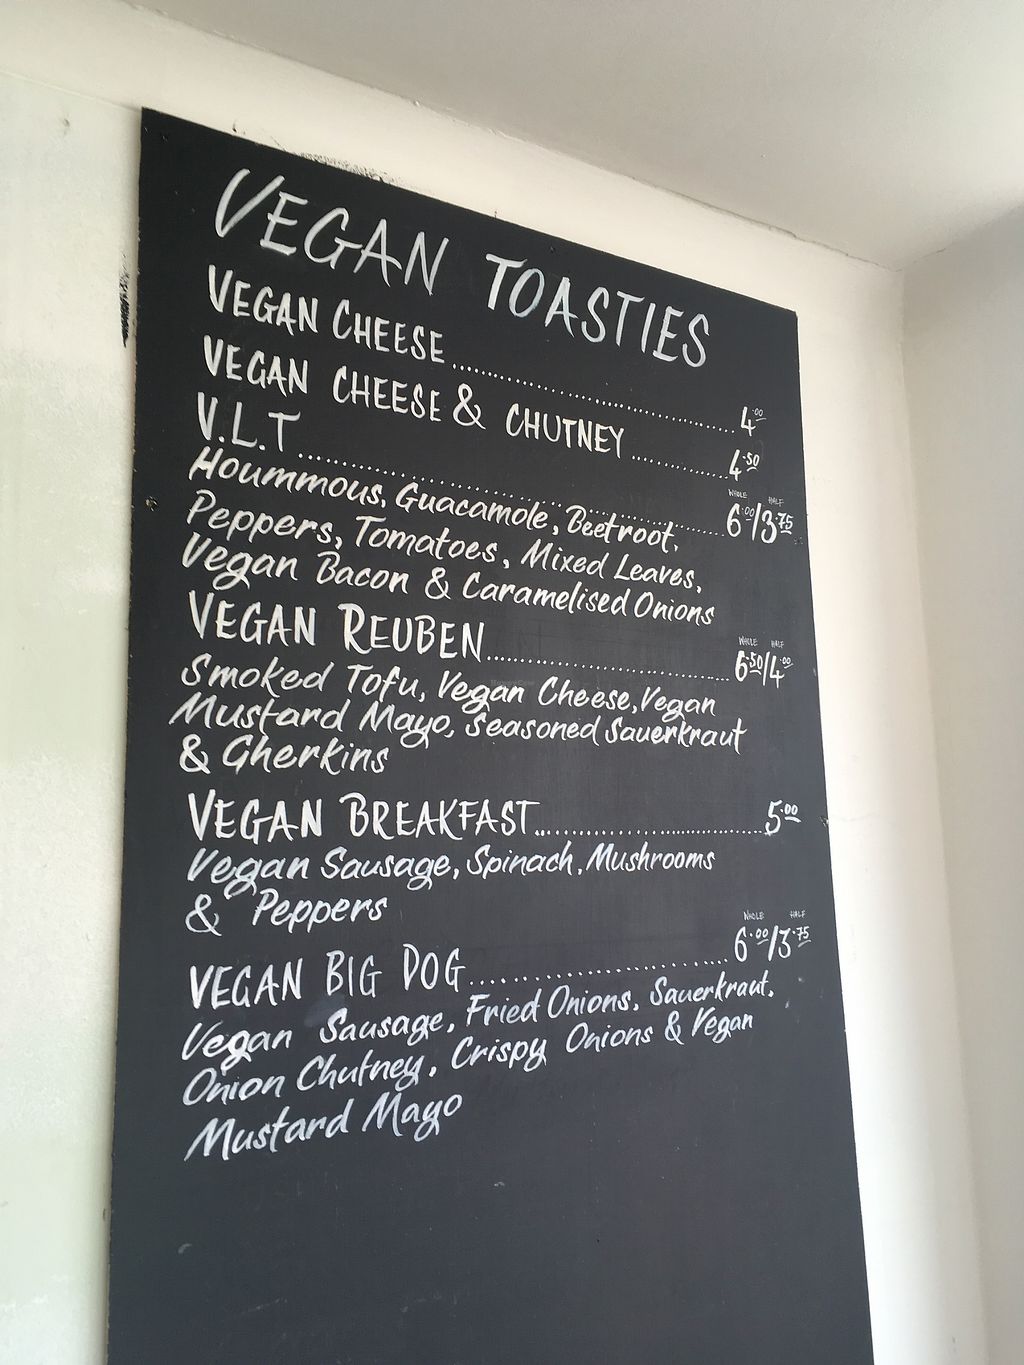 VEGAN TOASTIES
VEGAN CHEESE 4.00
VEGAN CHEESE & CHUTNEY 4.50
WHOLE HALF
V.L.T 6.00/3.75
Hoummous, Guacamole, Beetroot,
Peppers, Tomatoes, Mixed Leaves,
Vegan Bacon & Caramelised Onions
WHOLE HALF
VEGAN REUBEN 6.50/4.00
Smoked Tofu, Vegan Cheese, Vegan
Mustard Mayo, Seasoned Sauerkraut
& Gherkins
VEGAN BREAKFAST 5.00
Vegan Sausage, Spinach, Mushrooms
& Peppers
WHOLE HALF
VEGAN BIG DOG 6.00/3.75
Vegan Sausage, Fried Onions, Sauerkraut,
Onion Chutney, Crispy Onions & Vegan
Mustard Mayo